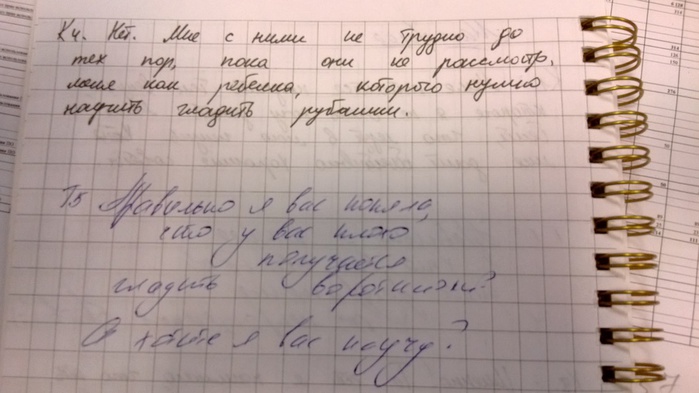 К4. Нет. Мне с ними не трудно до
тех пор, пока они не рассмотр.
меня как ребенка, которого нужно
научить гладить рубашки.
Т5 Правильно я вас поняла,
что у вас плохо
получается
гладить воротнички?
А хотите я вас научу?